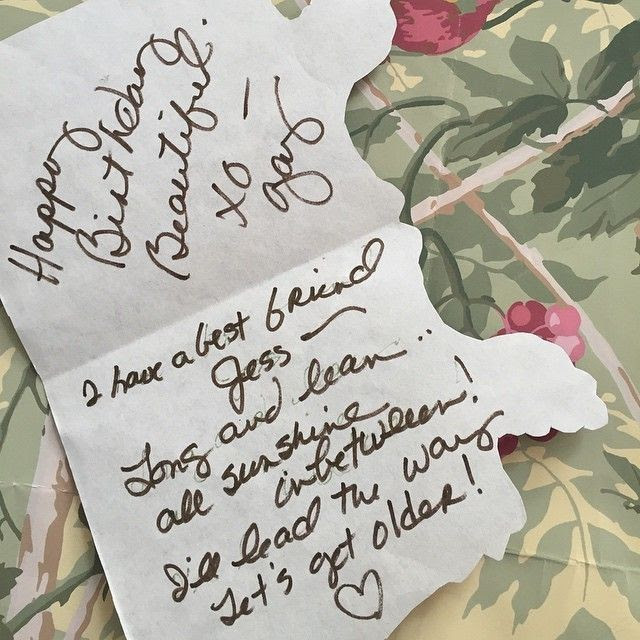 Happy
Birthday
Beautiful.
XO —
Gay
I have a best friend
Jess —
Long and lean..
all sunshine
inbetween!
I'll lead the way
Let's get older!
♡